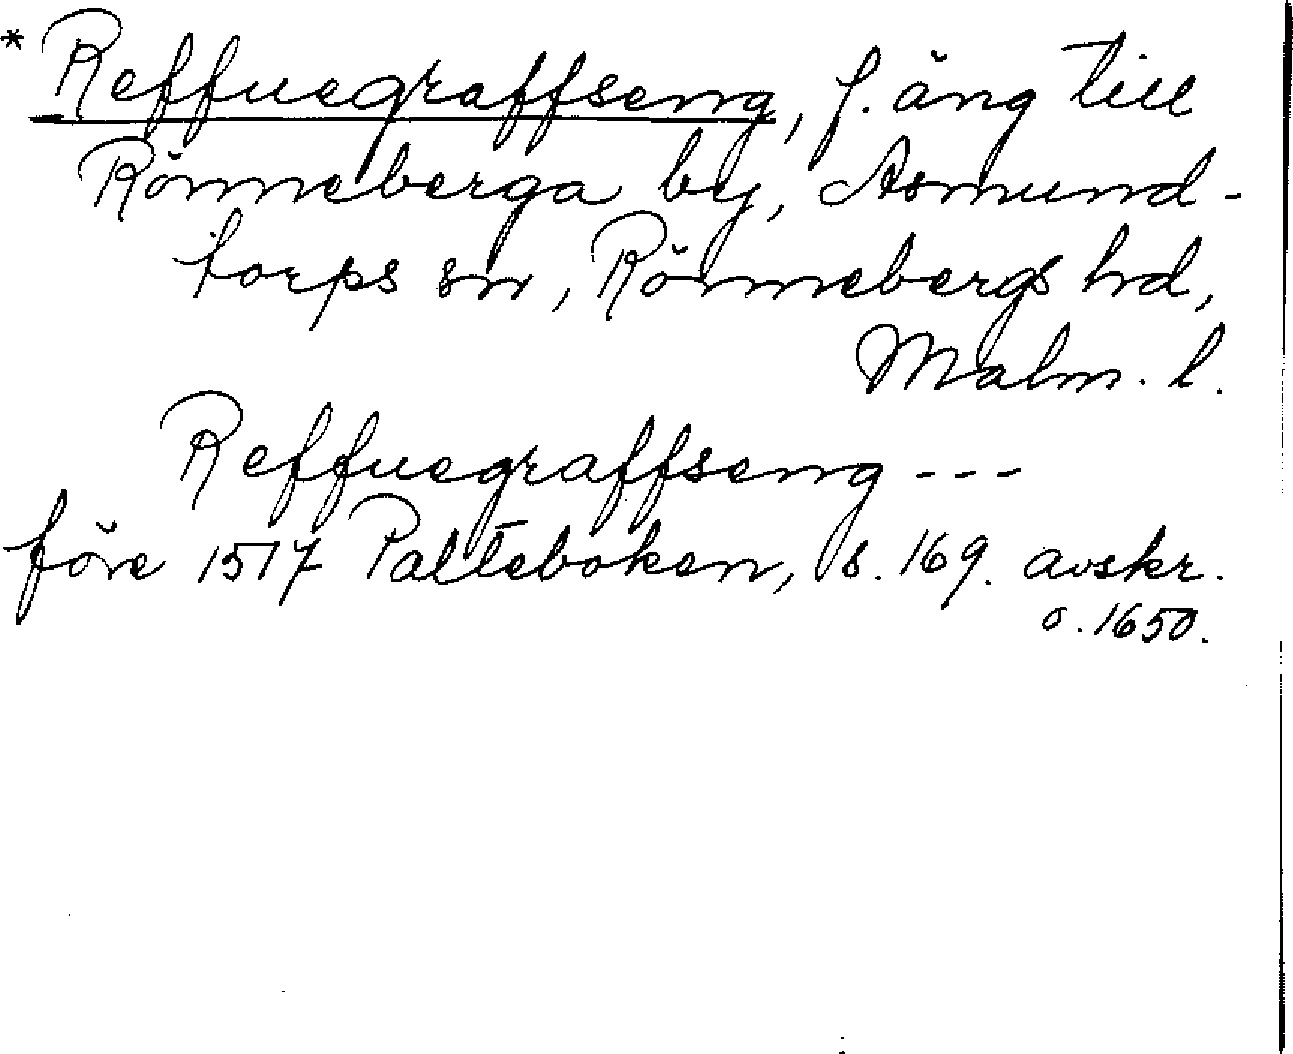 * Reffuegraffseng, f. äng till
Rönneberga by, Asmund-
torps sn, Rönnebergs hd,
Malm. l.
Reffuegraffseng ---
före 1517 Palteboken, s. 169. avskr.
o. 1650.